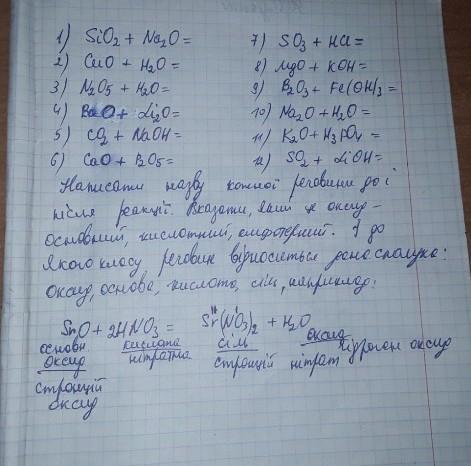 1) SiO₂ + Na₂O =
2) CuO + H₂O =
3) N₂O₅ + H₂O =
4) BaO + Li₂O =
5) CO₂ + NaOH =
6) CaO + P₂O₅ =
7) SO₃ + HCl =
8) MgO + KOH =
9) B₂O₃ + Fe(OH)₃ =
10) Na₂O + H₂O =
11) K₂O + H₃PO₄ =
12) SO₂ + LiOH =
Написати назву кожної речовини до і
після реакції. Вказати, який це оксид -
основний, кислотний, амфотерний. І до
якого класу речовин відноситься дана сполука:
оксид, основа, кислота, сіль, наприклад:
SrO + 2HNO₃ = Sr(NO₃)₂ + H₂O
основн кислота сіль оксид
оксид нітратна стронцій нітрат гідроген оксид
стронцій
оксид